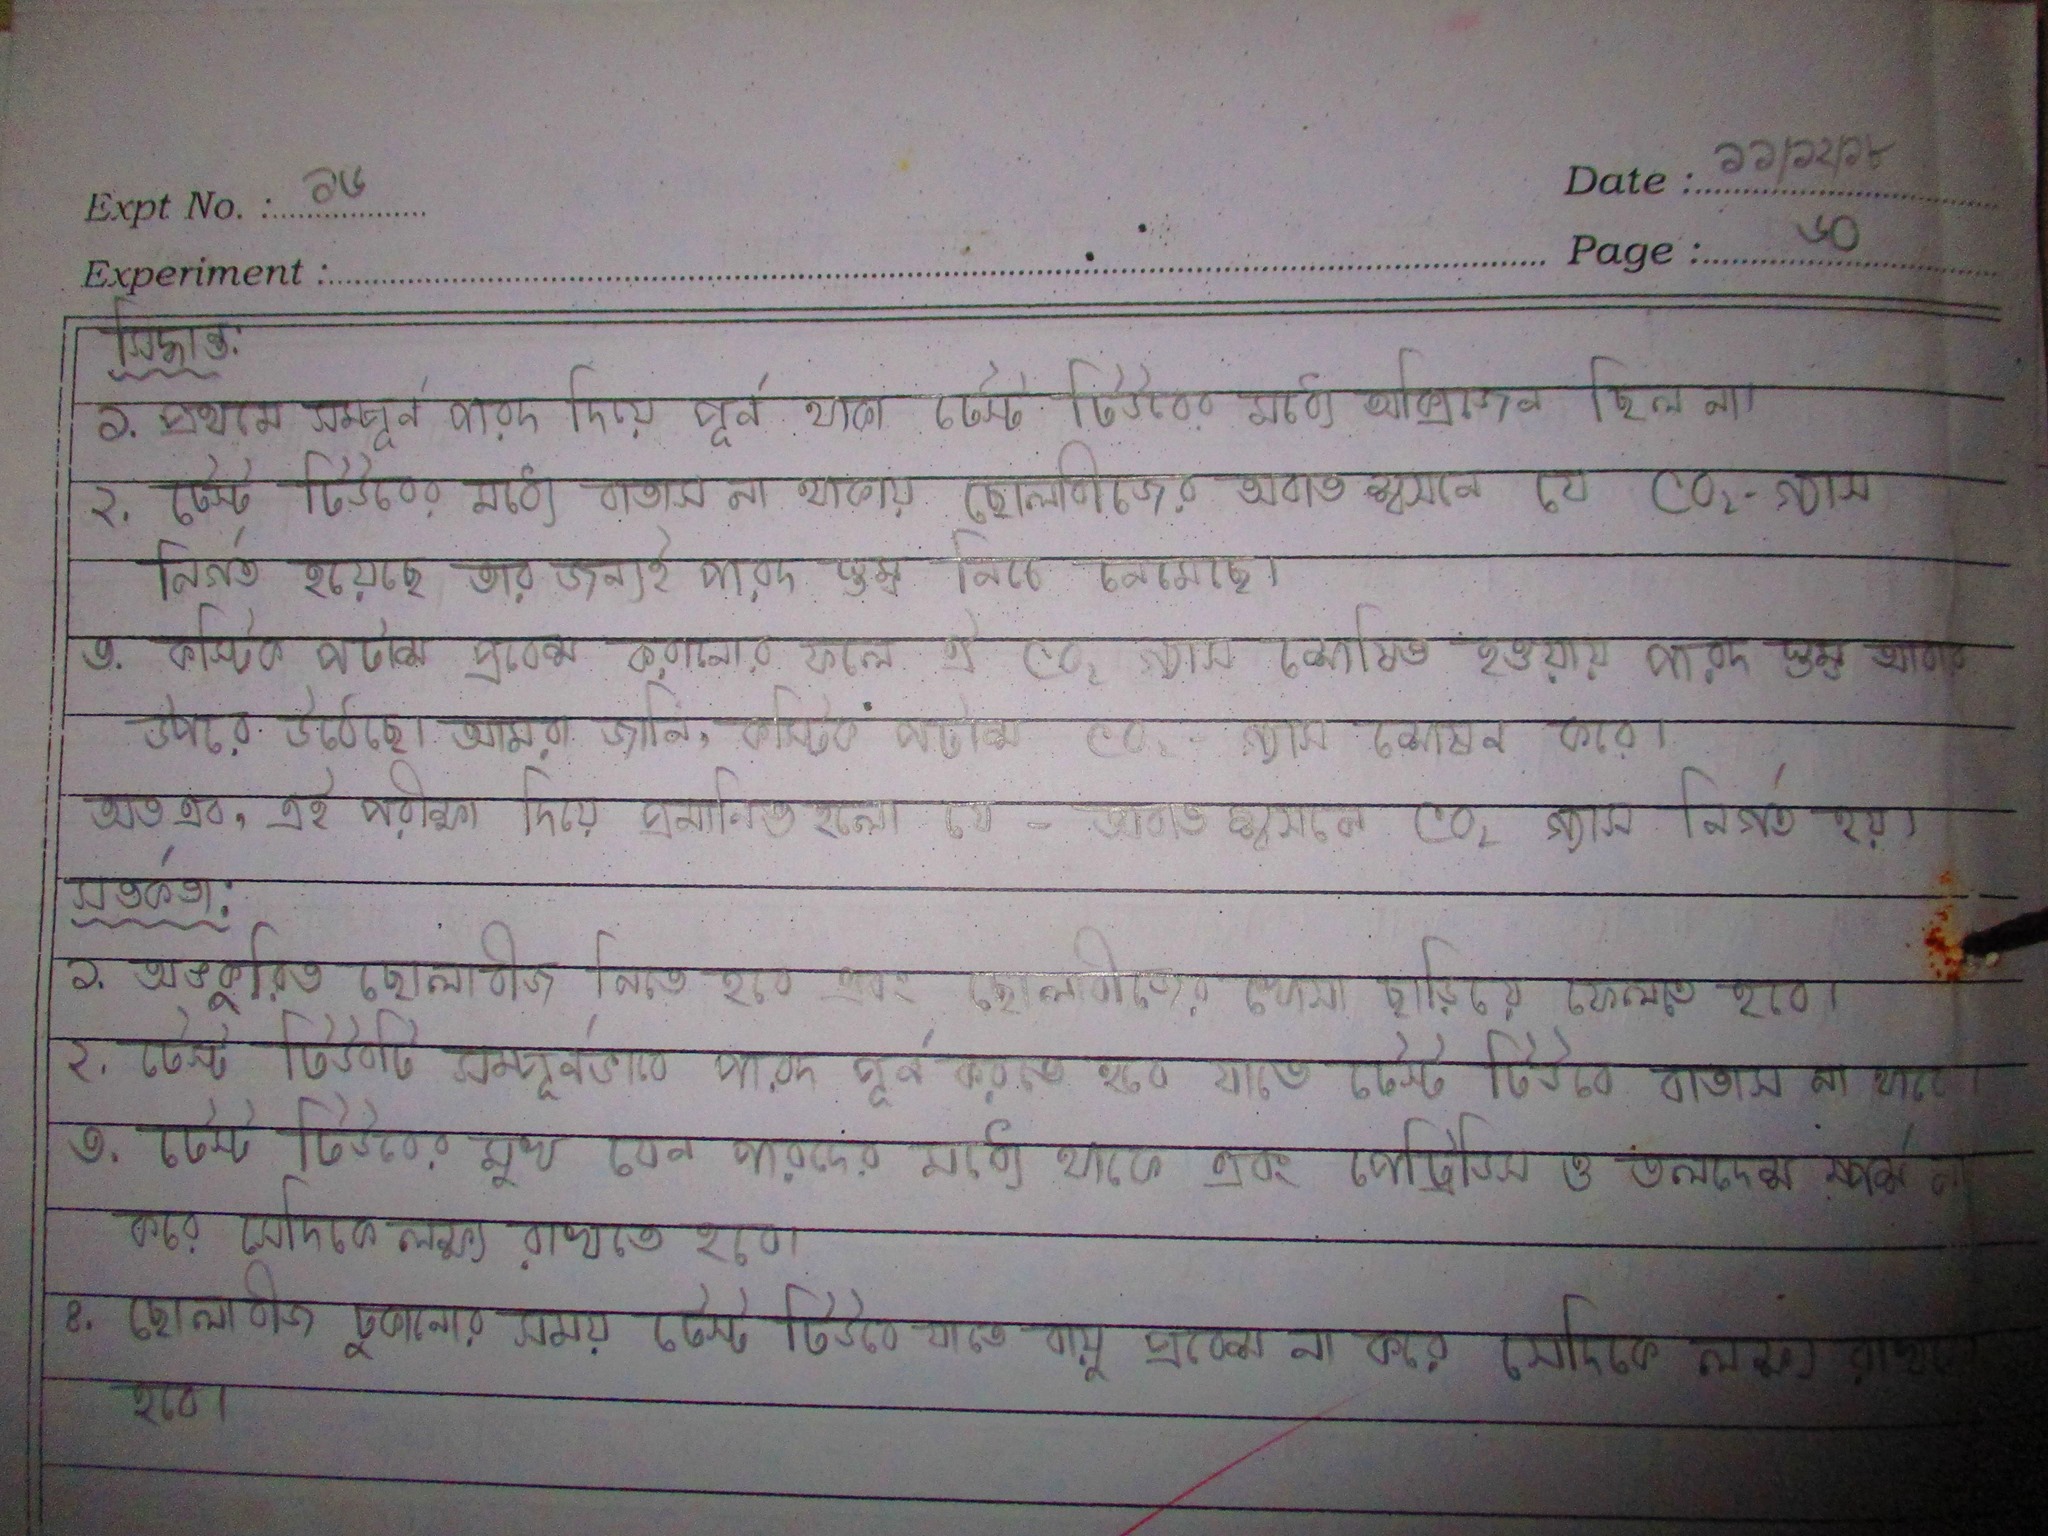 Expt No. : ১৬
Date : ১১/১২/১৮
Experiment :
Page : ৬০
সিদ্ধান্ত:
১. প্রথমে সম্পূর্ন পারদ দিয়ে পূর্ন থাকা টেস্ট টিউবের মধ্যে অক্সিজেন ছিল না।
২. টেস্ট টিউবের মধ্যে বাতাস না থাকায় ছোলাবীজের অবাত শ্বসনে যে CO₂ - গ্যাস
নির্গত হয়েছে তার জন্যই পারদ স্তম্ভ নিচে নেমেছে।
৩. কস্টিক পটাশ প্রবেশ করানোর ফলে ঐ CO₂ গ্যাস শোষিত হওয়ায় পারদ স্তম্ভ আবার
উপরে উঠেছে। আমরা জানি, কস্টিক পটাশ CO₂ - গ্যাস শোষন করে।
অতএব, এই পরীক্ষা দিয়ে প্রমানিত হলো যে - অবাত শ্বসনে CO₂ গ্যাস নির্গত হয়।
সতর্কতা:
১. অঙ্কুরিত ছোলাবীজ নিতে হবে এবং ছোলাবীজের খোসা ছাড়িয়ে ফেলতে হবে।
২. টেস্ট টিউবটি সম্পূর্নভাবে পারদ পূর্ন করতে হবে যাতে টেস্ট টিউবে বাতাস না থাকে।
৩. টেস্ট টিউবের মুখ যেন পারদের মধ্যে থাকে এবং পেট্রিডিস ও তলদেশ স্পর্শ না
করে সেদিকে লক্ষ্য রাখতে হবে।
৪. ছোলাবীজ ঢুকানোর সময় টেস্ট টিউবে যাতে বায়ু প্রবেশ না করে সেদিকে লক্ষ্য রাখতে
হবে।